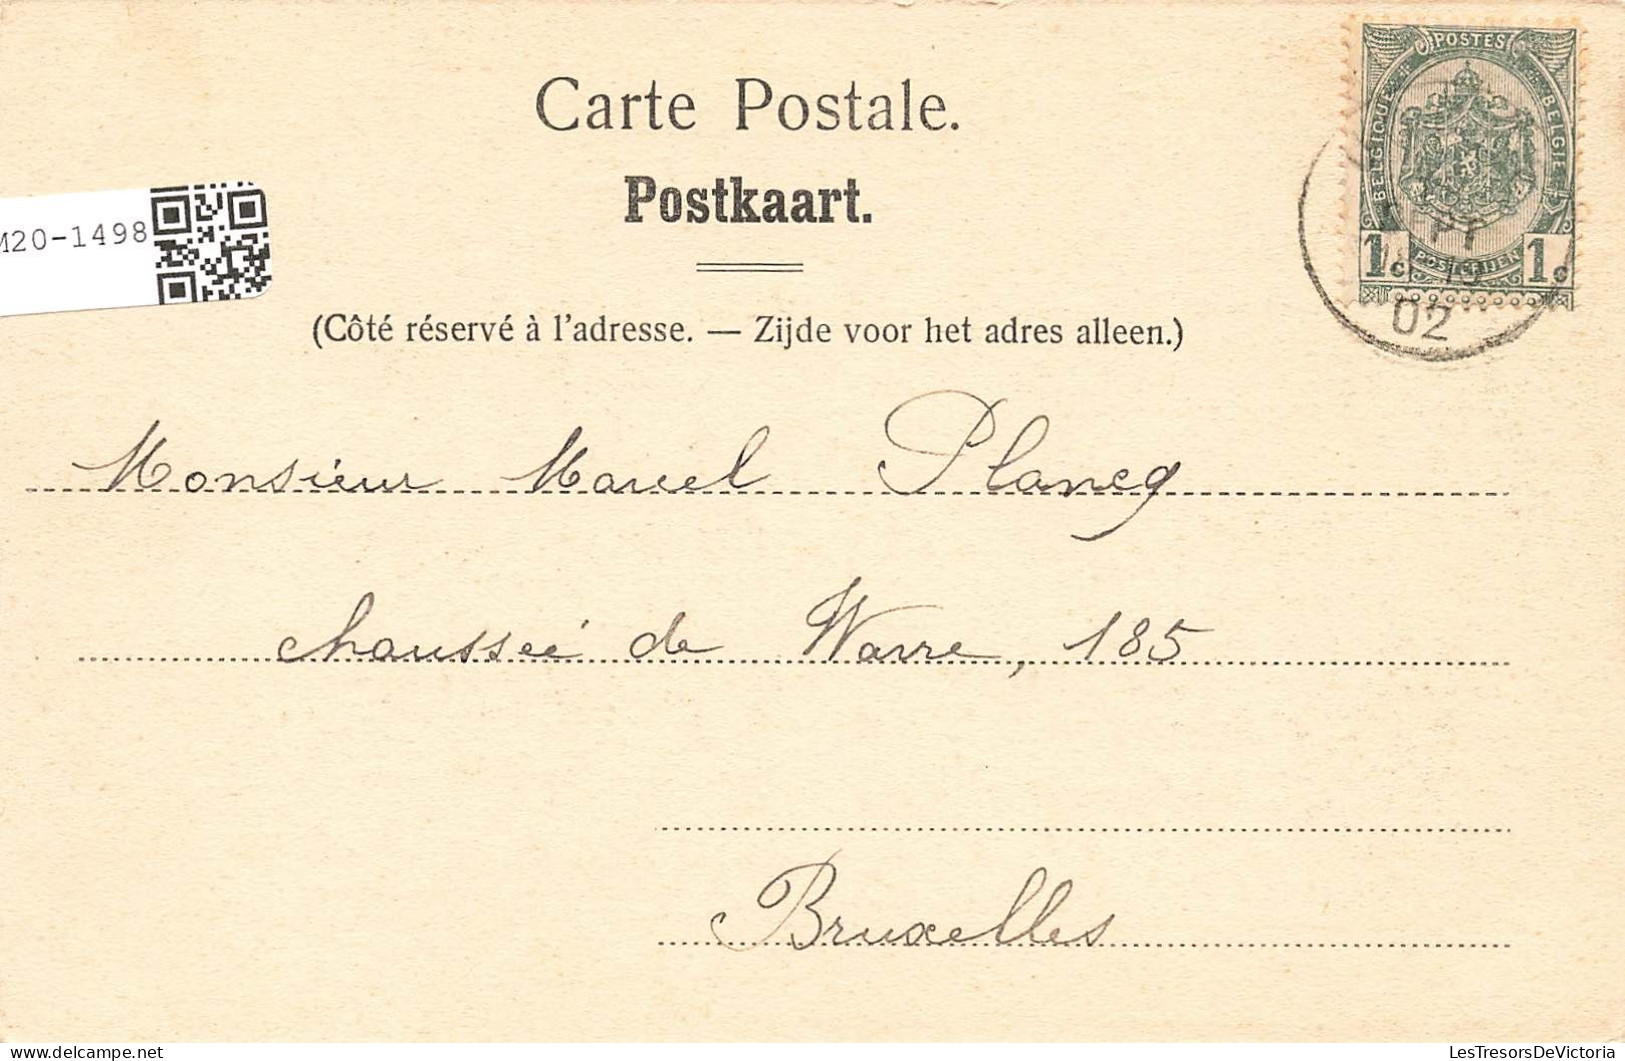 Carte Postale.
Postkaart.
(Côté réservé à l'adresse. — Zijde voor het adres alleen.)
POSTES
BELGIQUE
BELGIE
1c
POSTERIJEN
1c
02
M20-1498
Monsieur Marcel Plancq
chaussée de Wavre, 185
Bruxelles
LesTresorsDeVictoria
www.delcampe.net